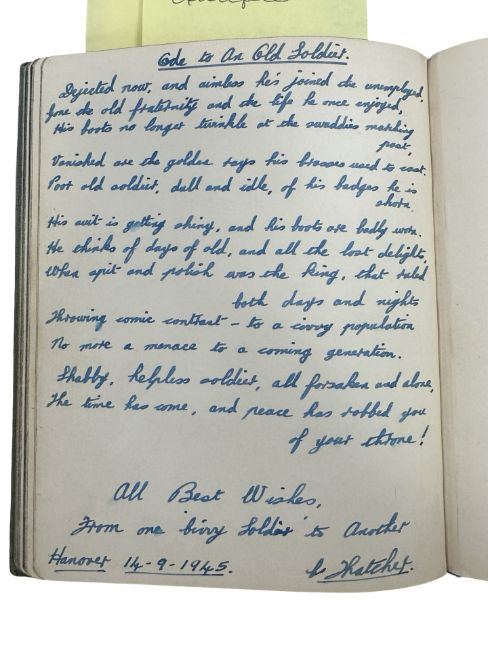 Ode to An Old Soldier.
Dejected now, and aimless he's joined the unemployed,
Gone the old fraternity and the life he once enjoyed,
His boots no longer twinkle at the swaddies marching
past,
Vanished are the golden rays his brasses used to cast.
Poor old soldier, dull and idle, of his badges he is
shorn.
His suit is getting shiny, and his boots are badly worn.
He thinks of days of old, and all the lost delights,
When spit and polish was the King, that ruled
both days and nights
Throwing comic contrast – to a population
No more a menace to a coming generation.
Shabby, helpless soldier, all forsaken and alone,
The time has come, and peace has robbed you
of your throne!
All Best Wishes,
From one 'bivvy Soldier' to Another
Hanover 14-9-1945.
Thatcher.